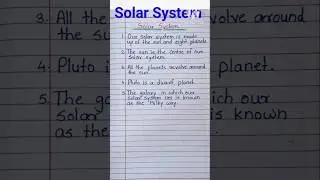 Solar System
Solar System
1. Our solar system is made
up of the sun and eight planets.
2. The sun is the centre of our
solar system.
3. All the planets revolve around
the sun.
4. Pluto is a dwarf planet.
5. The galaxy in which our
solar system lies is known
as the Milky way.
3. All the
the su
4. Pluto
5. The
solar
as the
around
planet.
our
is known